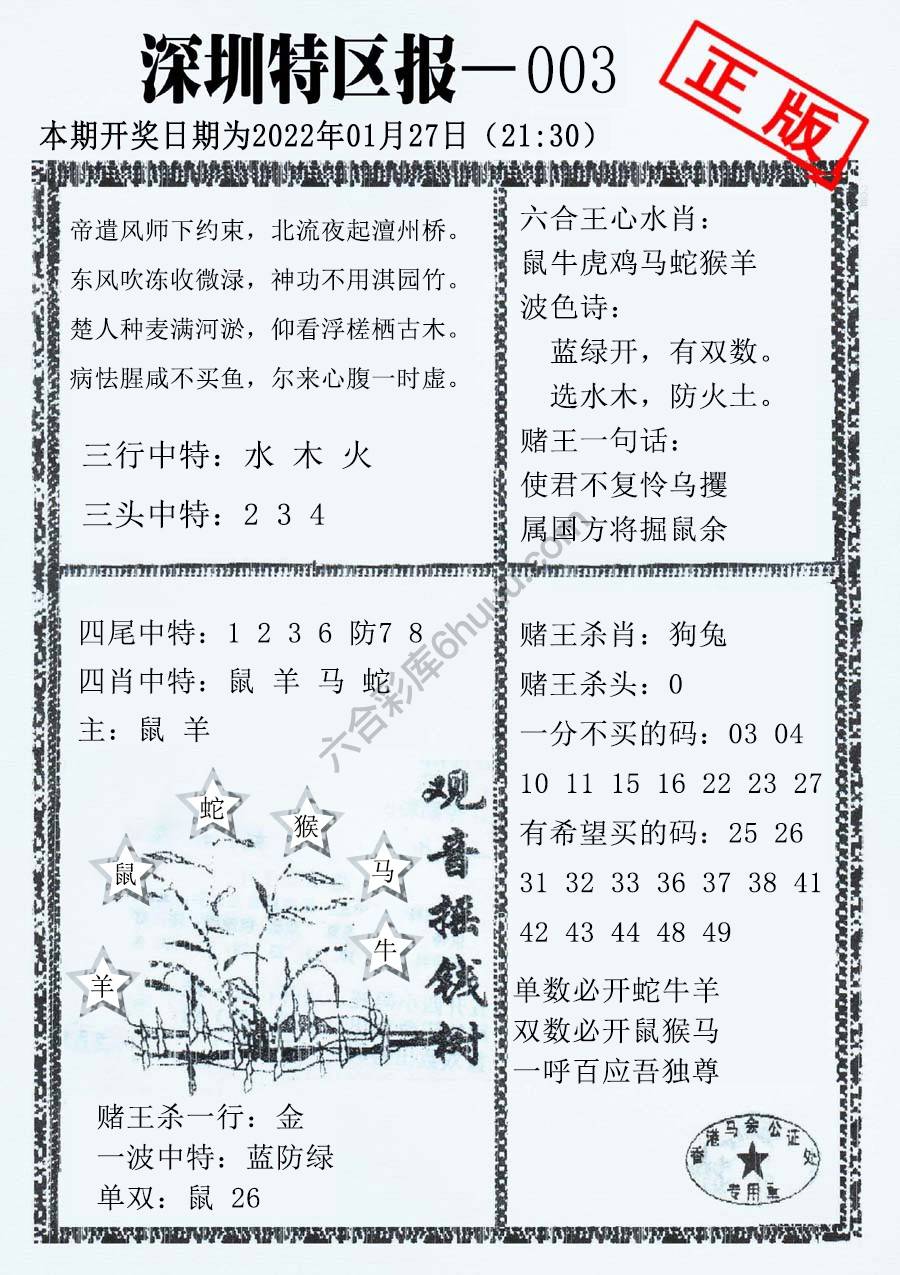 深圳特区报—003
正版
本期开奖日期为2022年01月27日（21:30）
帝遣风师下约束，北流夜起澶州桥。
东风吹冻收微渌，神功不用淇园竹。
楚人种麦满河淤，仰看浮槎栖古木。
病怯腥咸不买鱼，尔来心腹一时虚。
三行中特：水 木 火
三头中特：2 3 4
六合王心水肖：
鼠牛虎鸡马蛇猴羊
波色诗：
蓝绿开，有双数。
选水木，防火土。
赌王一句话：
使君不复怜乌攫
属国方将掘鼠余
四尾中特：1 2 3 6 防7 8
四肖中特：鼠 羊 马 蛇
主：鼠 羊
蛇
猴
鼠
马
牛
羊
观音摇钱树
赌王杀一行：金
一波中特：蓝防绿
单双：鼠 26
赌王杀肖：狗兔
赌王杀头：0
一分不买的码：03 04
10 11 15 16 22 23 27
有希望买的码：25 26
31 32 33 36 37 38 41
42 43 44 48 49
单数必开蛇牛羊
双数必开鼠猴马
一呼百应吾独尊
香港马会公证处
专用章
六合彩库6huuu.com